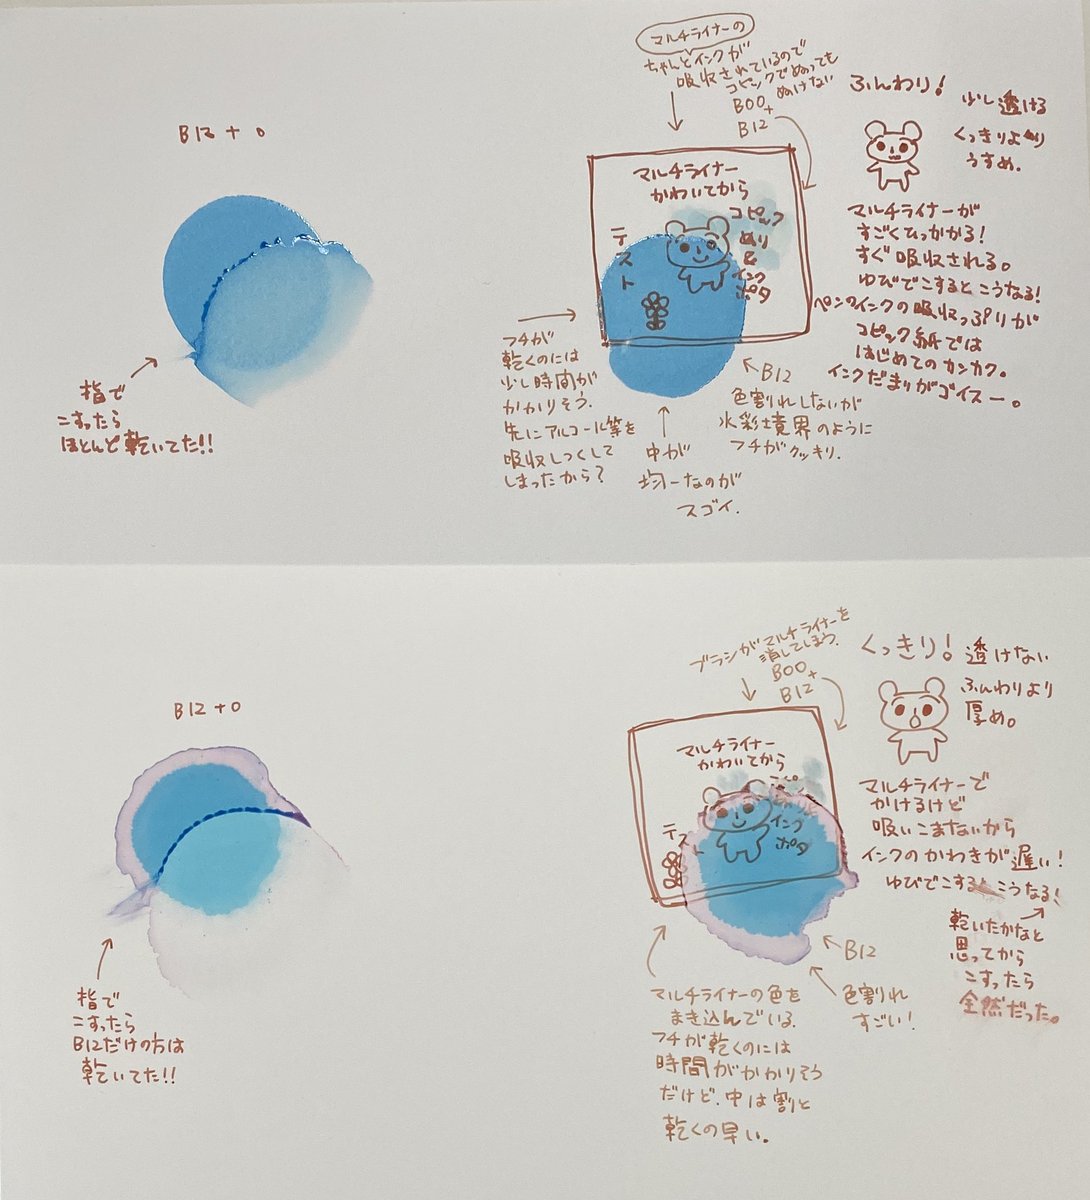 B12+0
指で
こすったら
ほとんど乾いてた!!
マルチライナーの
ちゃんとインクが
吸収されているので
コピックでぬっても
ぬけない
B00+
B12
マルチライナー
かわいてから
テスト
コピック
ぬり
&
インク
ポタ
フチが
乾くのには
少し時間が
かかりそう.
先にアルコール等を
吸収しつくして
しまったから?
中が
均一なのが
スゴイ.
B12
色割れしないが
水彩境界のように
フチがクッキリ.
ふんわり!
少し透ける
くっきりより
うすめ.
マルチライナーが
すごくひっかかる!
すぐ吸収される。
ゆびでこするとこうなる!
ペンのインクの吸収っぷりが
コピック紙では
はじめてのカンカク。
インクだまりがゴイスー。
B12+0
指で
こすったら
B12だけの方は
乾いてた!!
ブラシがマルチライナーを
消してしまう.
B00+
B12
マルチライナー
かわいてから
テスト
インク
ポタ
マルチライナーの色を
まき込んでいる.
フチが乾くのには
時間がかかりそう
だけど.中は割と
乾くの早い.
B12
色割れ
すごい!
くっきり!
透けない
ふんわりより
厚め。
マルチライナーで
かけるけど
吸いこまないから
インクのかわきが遅い!
ゆびでこするとこうなる!
乾いたかなと
思ってから
こすったら
全然だった。